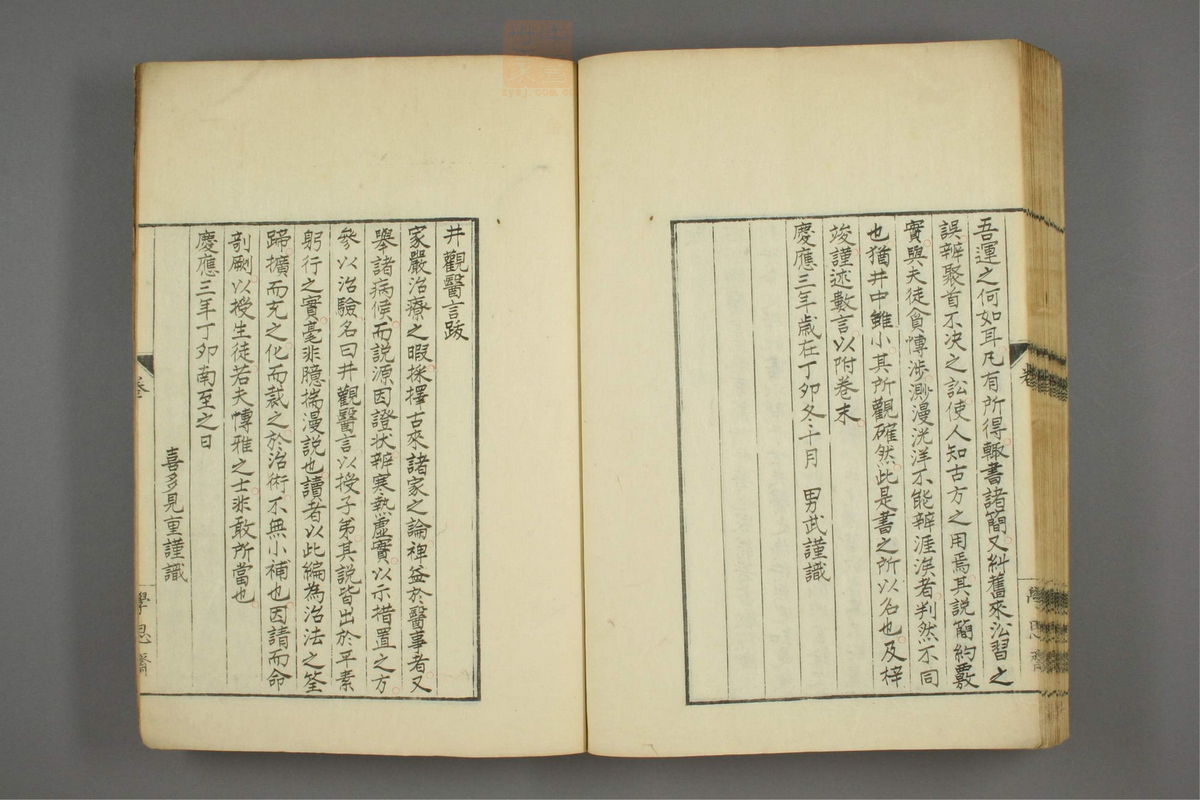 吾運之何如耳凡有所得輒書諸簡又糾舊來沿習之
誤辨聚首不決之訟使人知古方之用焉其說簡約覈
實與夫徒貪愽涉渺漫洸洋不能辨涯涘者判然不同
也猶井中雖小其所觀確然此是書之所以名也及梓
竣謹述數言以附卷末
慶應三年歲在丁卯冬十月 男武謹識
井觀醫言跋
家嚴治療之暇採擇古來諸家之論裨益於醫事者又
舉諸病候而說源因證狀辨寒熱虛實以示措置之方
參以治驗名曰井觀醫言以授子弟其說皆出於平素
躬行之實毫非臆揣漫說也讀者以此編為治法之筌
蹄擴而充之化而裁之於治術不無小補也因請而命
剞劂以授生徒若夫愽雅之士非敢所當也
慶應三年丁卯南至之日
喜多見重謹識
學思齋
zysj.com.cn